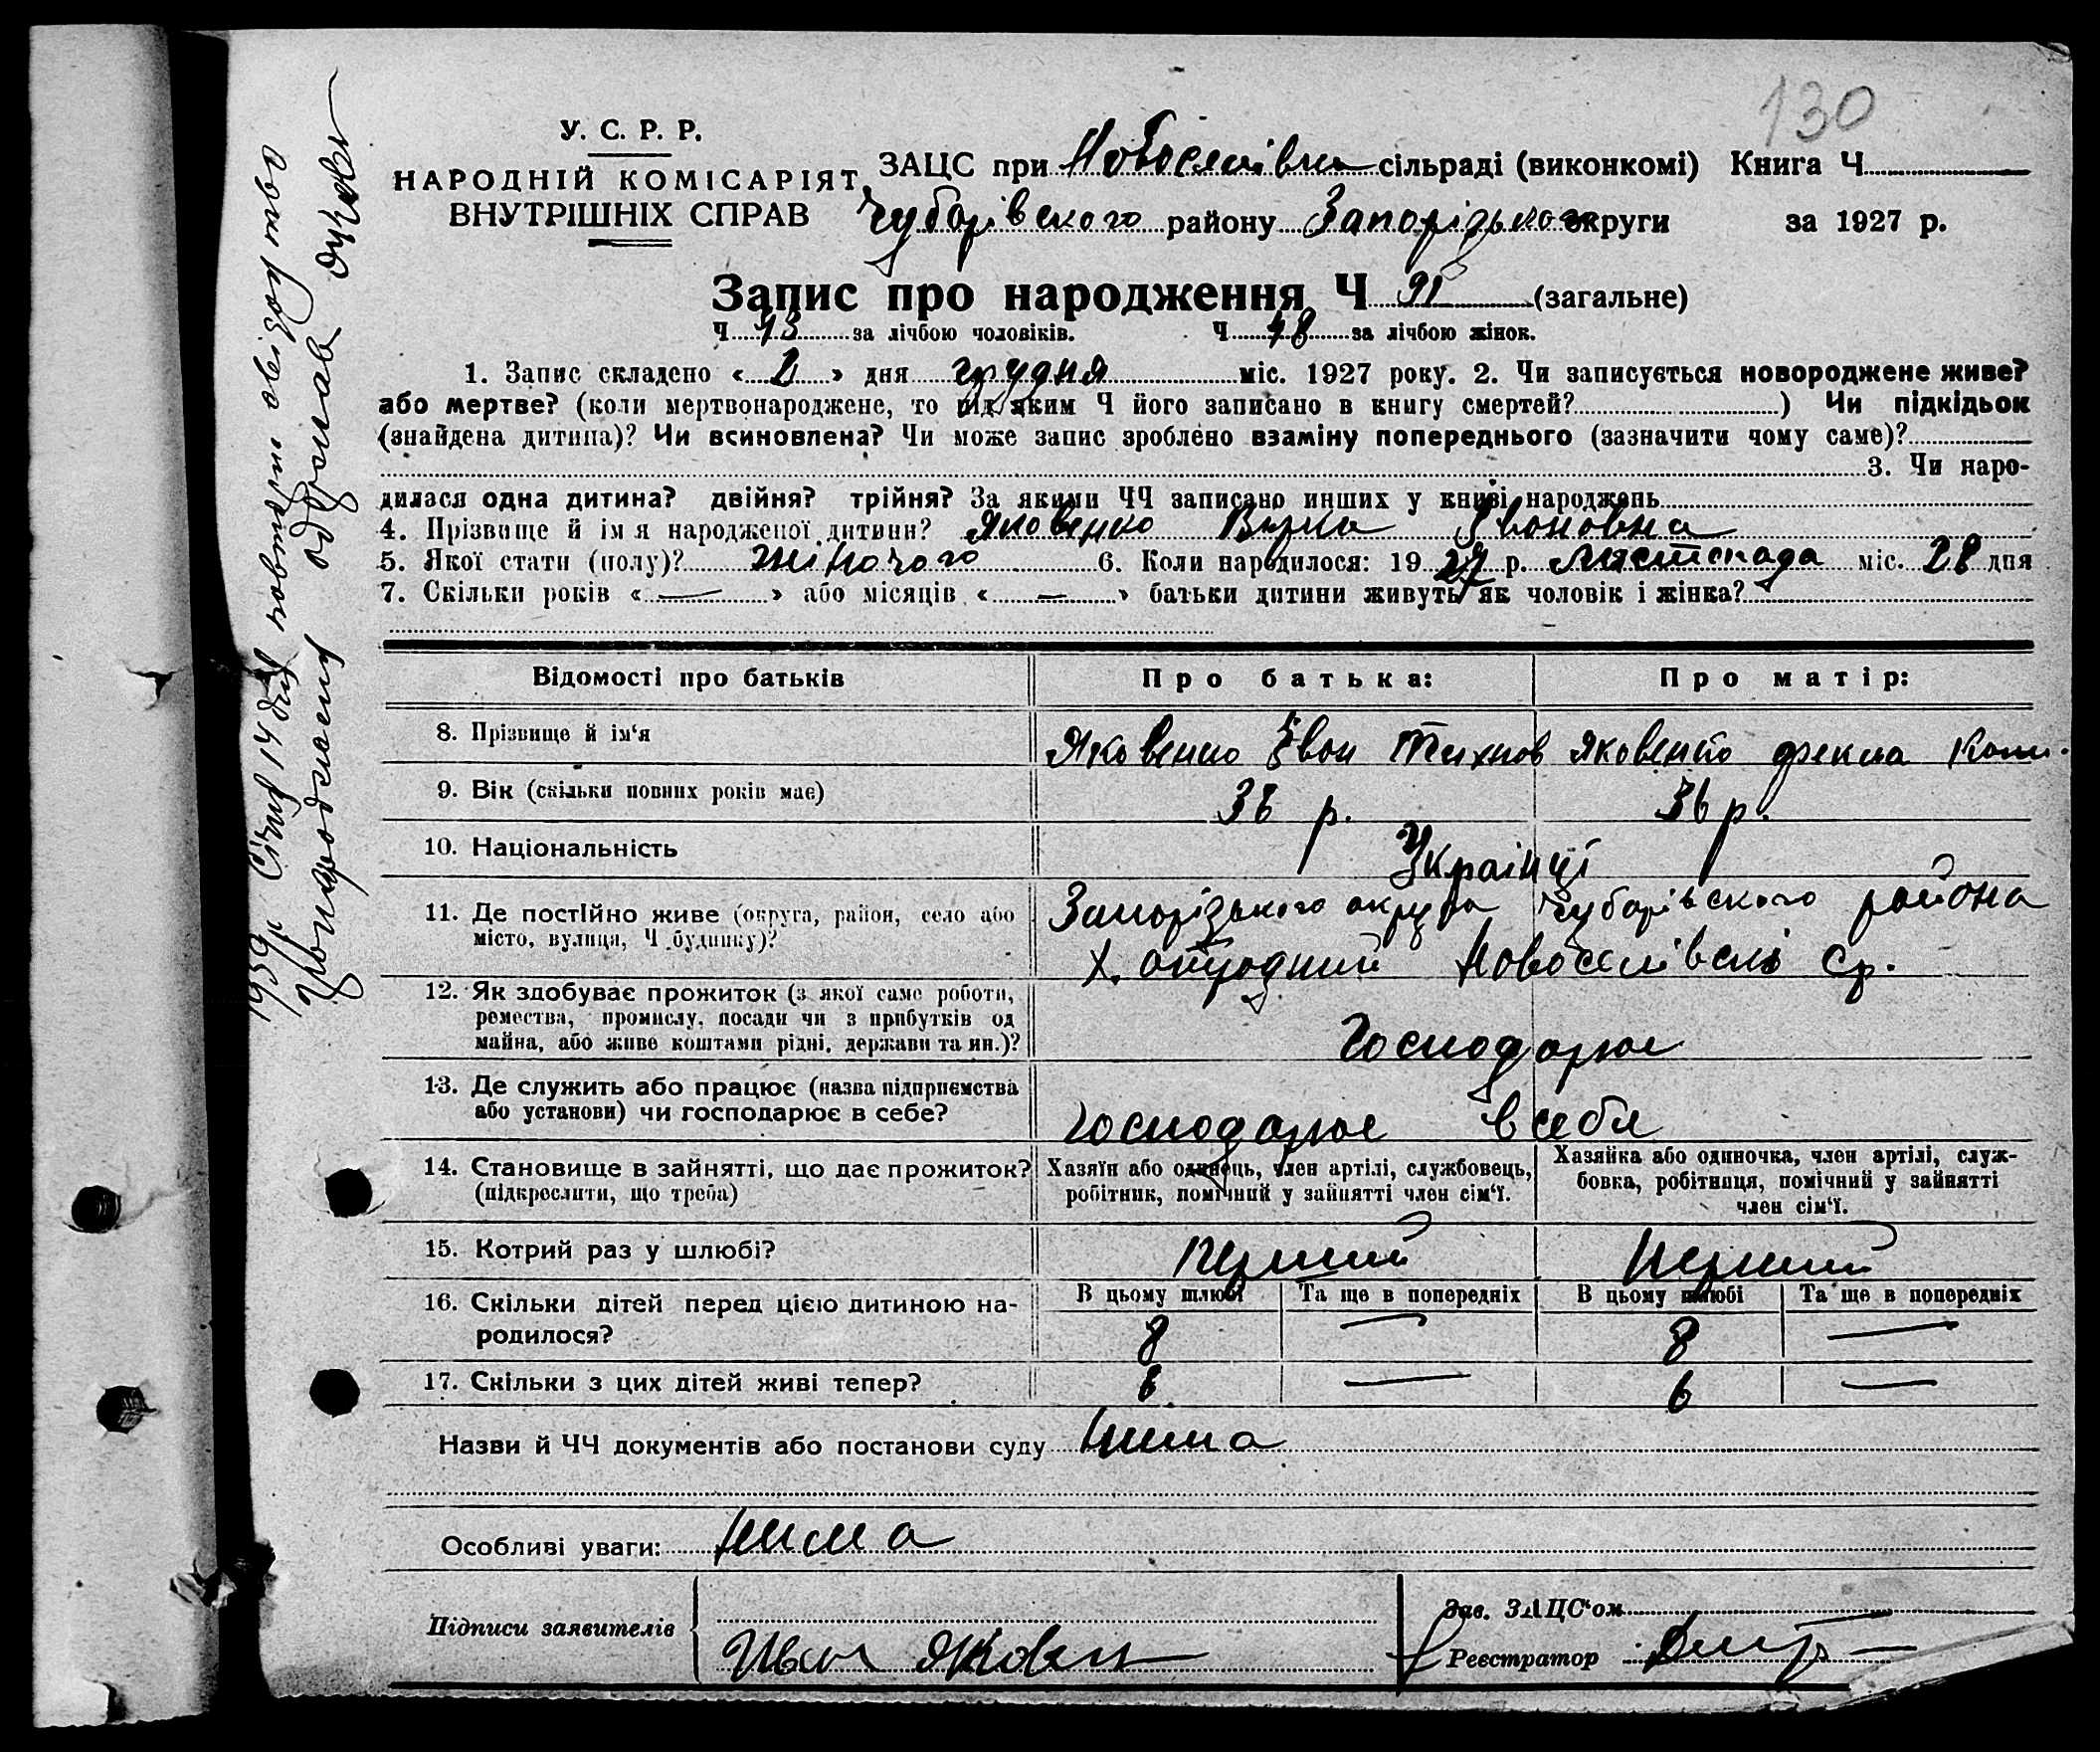 130
У. С. Р. Р.
НАРОДНІЙ КОМІСАРІЯТ
ВНУТРІШНІХ СПРАВ
ЗАЦС при Новоселівкь сільраді (виконкомі) Книга Ч
Чубарівського району Запорізького округи за 1927 р.
Запис про народження Ч 91 (загальне)
Ч 43 за лічбою чоловіків. Ч 48 за лічбою жінок.
1. Запис складено « 2 » дня грудня міс. 1927 року. 2. Чи записується новороджене живе?
або мертве? (коли мертвонароджене, то під яким Ч його записано в книгу смертей? ) Чи підкідьок
(знайдена дитина)? Чи всиновлена? Чи може запис зроблено взаміну попереднього (зазначити чому саме)?
3. Чи наро-
дилася одна дитина? двійня? трійня? За якими ЧЧ записано инших у книзі народжень
4. Прізвище й ім я народженої дитини? Яковенко Вірка Івоновна
5. Якої стати (полу)? жіночого 6. Коли народилося: 19 27 р. листопада міс. 28 дня
7. Скільки років « — » або місяців « — » батьки дитини живуть як чоловік і жінка?
Відомості про батьків Про батька: Про матір:
8. Прізвище й ім‘я Яковенко Івон Тихнов Яковенко
9. Вік (скільки повних років має) 36 р. 36 р.
10. Національність Украінці
11. Де постійно живе (округа, район, село або
місто, вулиця, Ч будинку)?
Запорізького округа Чубарівского района
Х. Новоселівскі Ср.
12. Як здобуває прожиток (з якої саме роботи,
ремества, промислу, посади чи з прибутків од
майна, або живе коштами рідні, держави та ин.)?
Господарює
13. Де служить або працює (назва підприємства
або установи) чи господарює в себе?
господарює в себе
14. Становище в зайнятті, що дає прожиток?
(підкреслити, що треба)
Хазяїн або одинець, член артілі, службовець,
робітник, помічний у зайнятті член сім‘ї.
Хазяйка або одиночка, член артілі, служ-
бовка, робітниця, помічний у зайнятті
член сім‘ї.
15. Котрий раз у шлюбі? перший перший
16. Скільки дітей перед цією дитиною на-
родилося?
В цьому шлюбі Та ще в попередніх В цьому шлюбі Та ще в попередніх
8 — 8 —
17. Скільки з цих дітей живі тепер? 6 — 6 —
Назви й ЧЧ документів або постанови суду нима
Особливі уваги: нима
Підписи заявителів
Иван Яковен
Зав. ЗАЦС‘ом
Реєстратор
1939 р Січня 14 дня